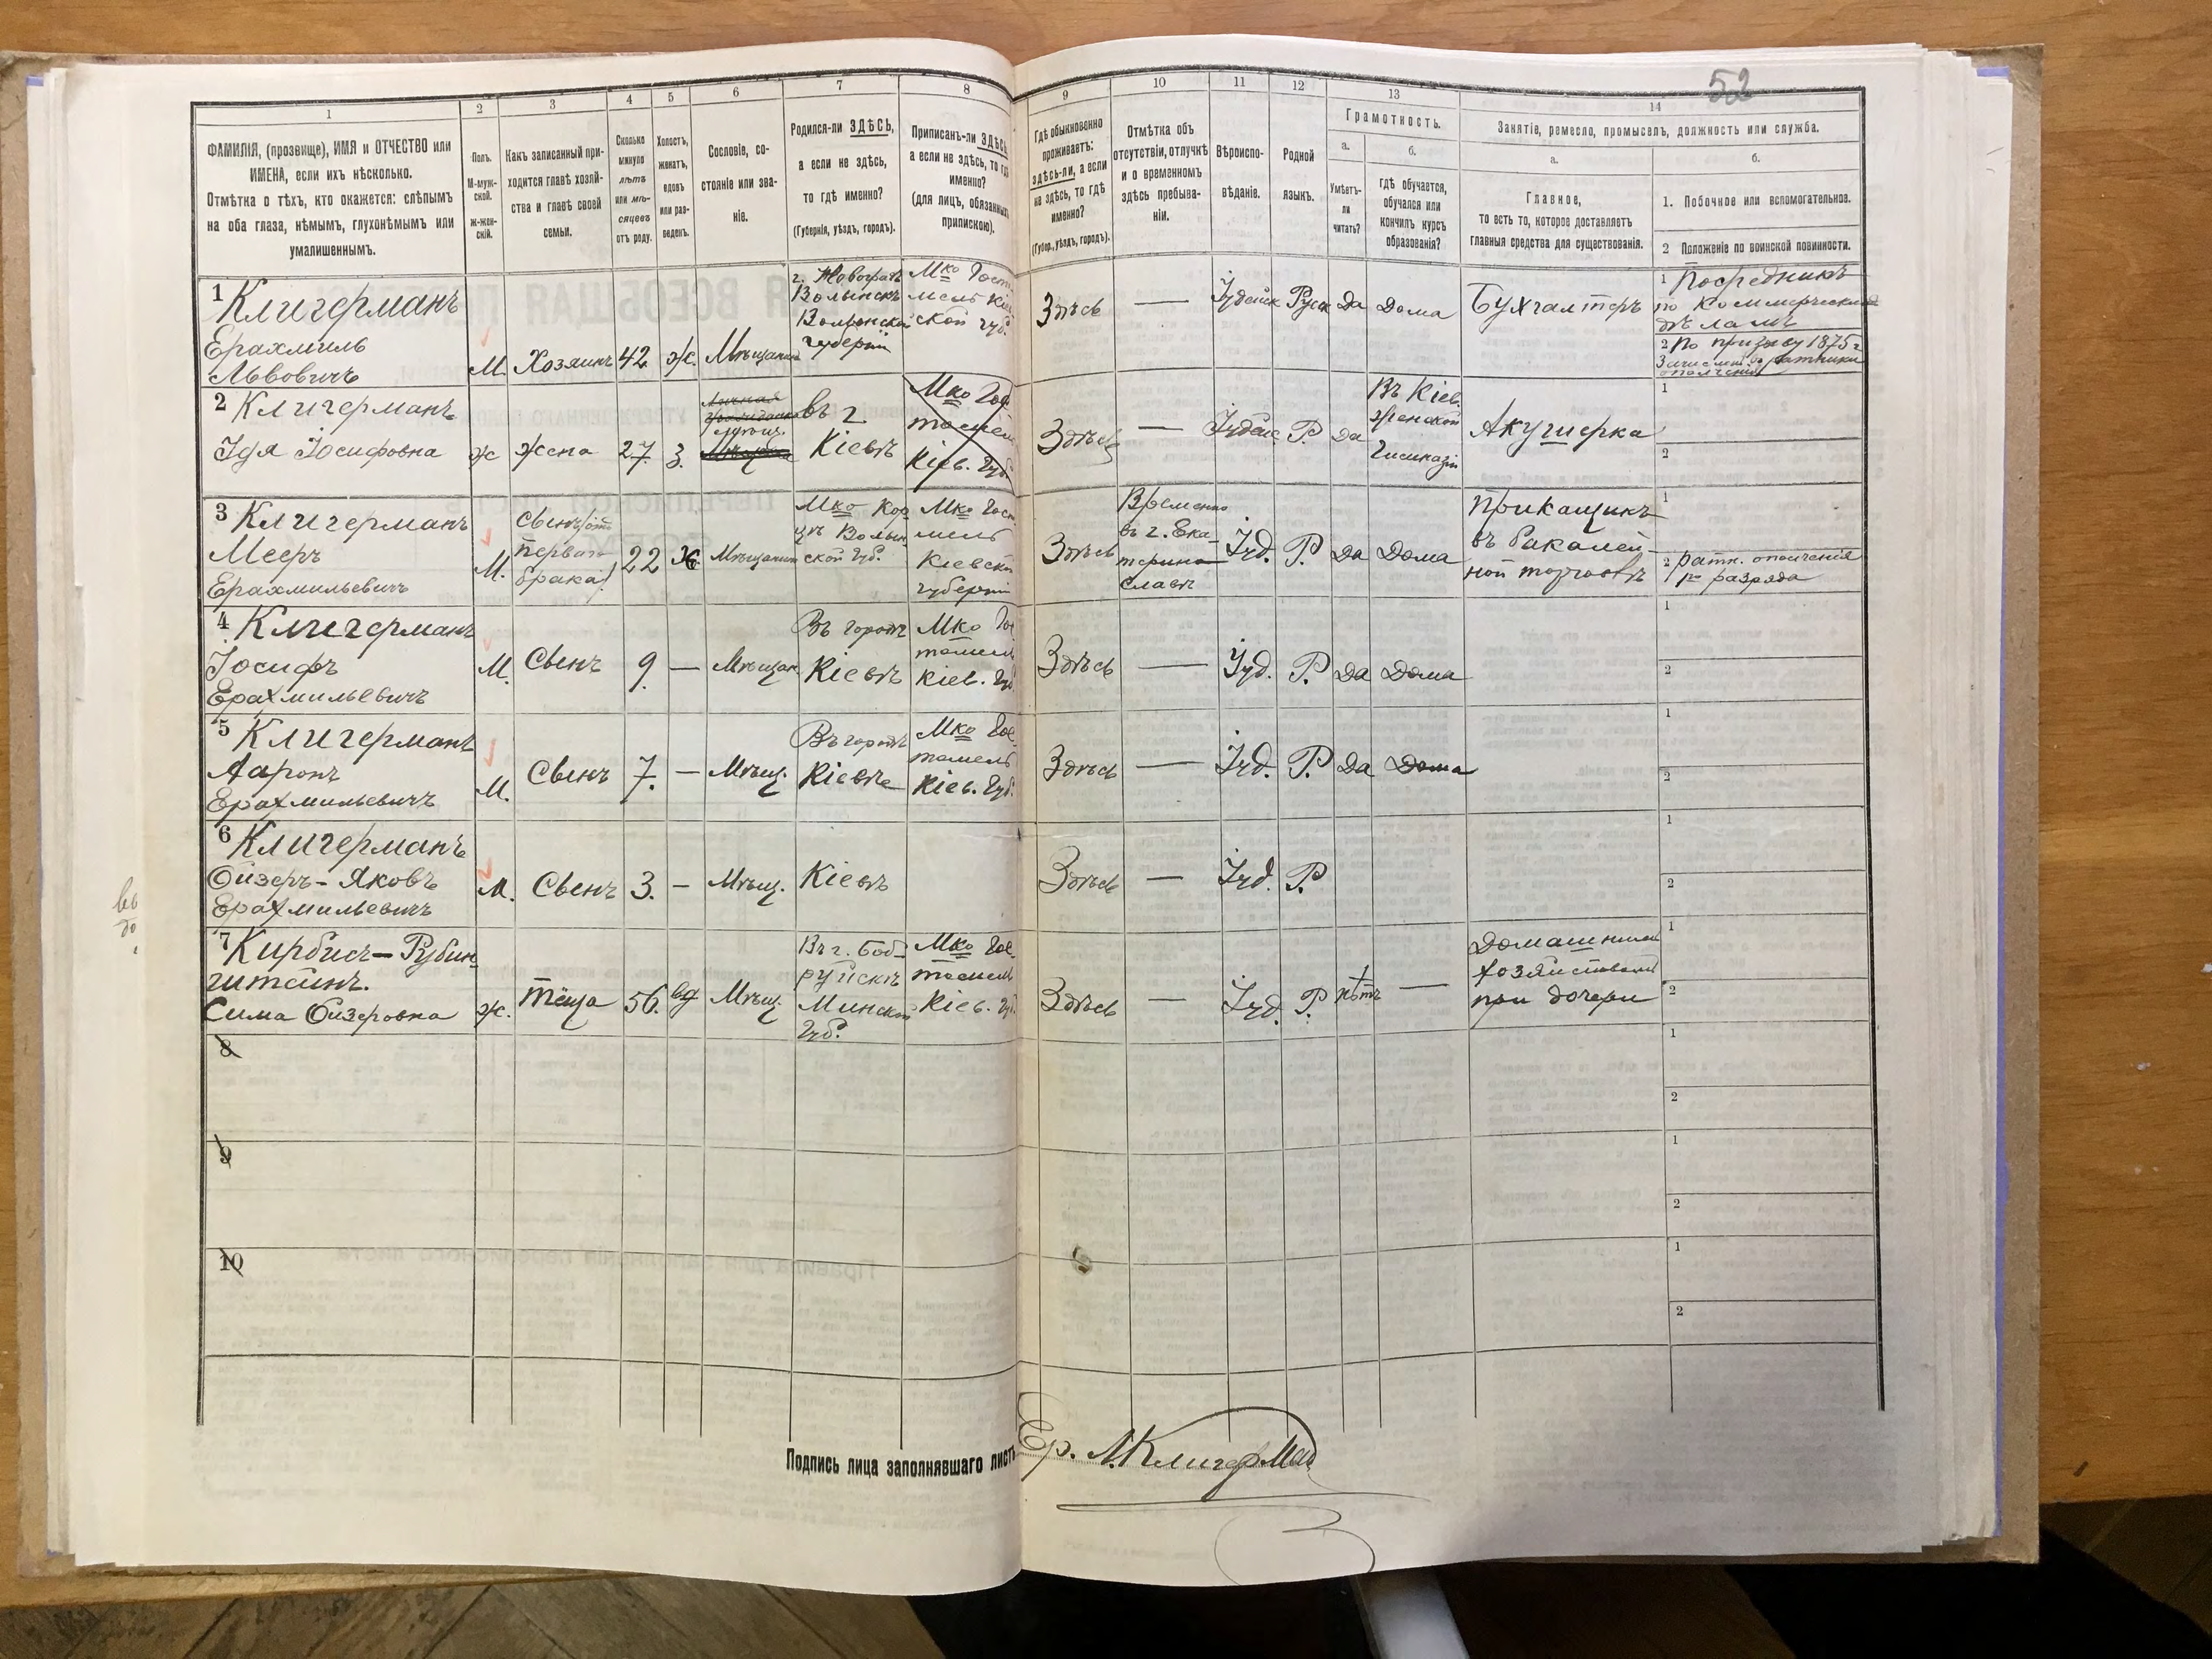 52
1
2
3
4
5
6
7
8
9
10
11
12
13
14
ФАМИЛІЯ, (прозвище), ИМЯ и ОТЧЕСТВО или
ИМЕНА, если ихъ нѣсколько.
Отмѣтка о тѣхъ, кто окажется: слѣпымъ
на оба глаза, нѣмымъ, глухонѣмымъ или
умалишеннымъ.
Полъ.
М-муж-
ской.
ж-жен-
скій.
Какъ записанный при-
ходится главѣ хозяй-
ства и главѣ своей
семьи.
Сколько
минуло
лѣтъ
или мѣ-
сяцевъ
отъ роду.
Холостъ,
женатъ,
вдовъ
или раз-
веденъ.
Сословіе, со-
стояніе или зва-
ніе.
Родился-ли ЗДѢСЬ,
а если не здѣсь,
то гдѣ именно?
(Губернія, уѣздъ, городъ).
Приписанъ-ли ЗДѢСЬ,
а если не здѣсь, то гдѣ
именно?
(для лицъ, обязанныхъ
припискою).
Гдѣ обыкновенно
проживаетъ:
здѣсь-ли, а если
не здѣсь, то гдѣ
именно?
(Губер, уѣздъ, городъ).
Отмѣтка объ
отсутствіи, отлучкѣ
и о временномъ
здѣсь пребыва-
ніи.
Вѣроиспо-
вѣданіе.
Родной
языкъ.
Грамотность.
а.
Умѣетъ-
ли
читать?
б.
гдѣ обучается,
обучался или
кончилъ курсъ
образованія?
Занятіе, ремесло, промыселъ, должность или служба.
а.
Главное,
то есть то, которое доставляетъ
главныя средства для существованія.
б.
1. Побочное или вспомогательное.
2 Положеніе по воинской повинности.
1 Клигерманъ
Ерахмиль
Львовичъ
М. Хозяинъ 42 ж. Мѣщанинъ
г. Новоградъ
Волынскъ
Волынской
губерніи
Мко Гост
мель Кіев
ской губ.
Здѣсь — Іудейск Русск Да Дома Бухгалтеръ
1 Посредникъ
по Коммерческимъ
дѣламъ
2 По призыву 1875 г
Зачислен. въ ратники
ополченія
2 Клигерманъ
Идя Іосифовна
ж жена 27. З.
въ г.
Кіевѣ
Мко Гос
томель
Кіев. Губ
Здѣсь — Іудейс Р. Да
Въ Кіев.
женской
Гимназіи
Акушерка
1
2
3 Клигерманъ
Мееръ
Ерахмильевичъ
М.
Сынъ (отъ
перваго
брака)
22 ж. Мѣщанин
Мко Кор
цъ Волын
ской Губ.
Мко Гост
мель
Кіевской
губерніи
Здѣсь
Временно
въ г. Ека-
терино
славѣ
Іуд. Р. Да Дома
Прикащикъ
въ бакалей-
ной торговлѣ
1
2 ратн. ополченія
1го разряда
4 Клигерманъ
Іосифъ
Ерахмильевичъ
М. Сынъ 9. — Мѣщан.
Въ городѣ
Кіевѣ
Мко Гос
томель
Кіев. Губ
Здѣсь — Іуд. Р. Да Дома
1
2
5 Клигерманъ
Ааронъ
Ерахмильевичъ
М. Сынъ 7. — Мѣщ.
Въ городѣ
Кіевѣ
Мко Гос-
томель
Кіев. Губ.
Здѣсь — Іуд. Р. Да Дома
1
2
6 Клигерманъ
Ойзеръ-Яковъ
Ерахмильевичъ
М. Сынъ 3. — Мѣщ. Кіевѣ
Здѣсь — Іуд. Р.
1
2
7 Кирбисъ-Рубин-
штейнъ.
Сима Ойзеровна
ж. тёща 56. вд Мѣщ.
Въ г. Боб-
руйскѣ
Минской
Губ.
Мко Гос-
томель
Кіев. Губ
Здѣсь — Іуд. Р. нѣтъ —
Домашнимъ
хозяйствомъ
при дочери
1
2
8
1
2
9
1
2
10
1
2
Подпись лица заполнявшаго листъ
Ер. Л. Клигерман